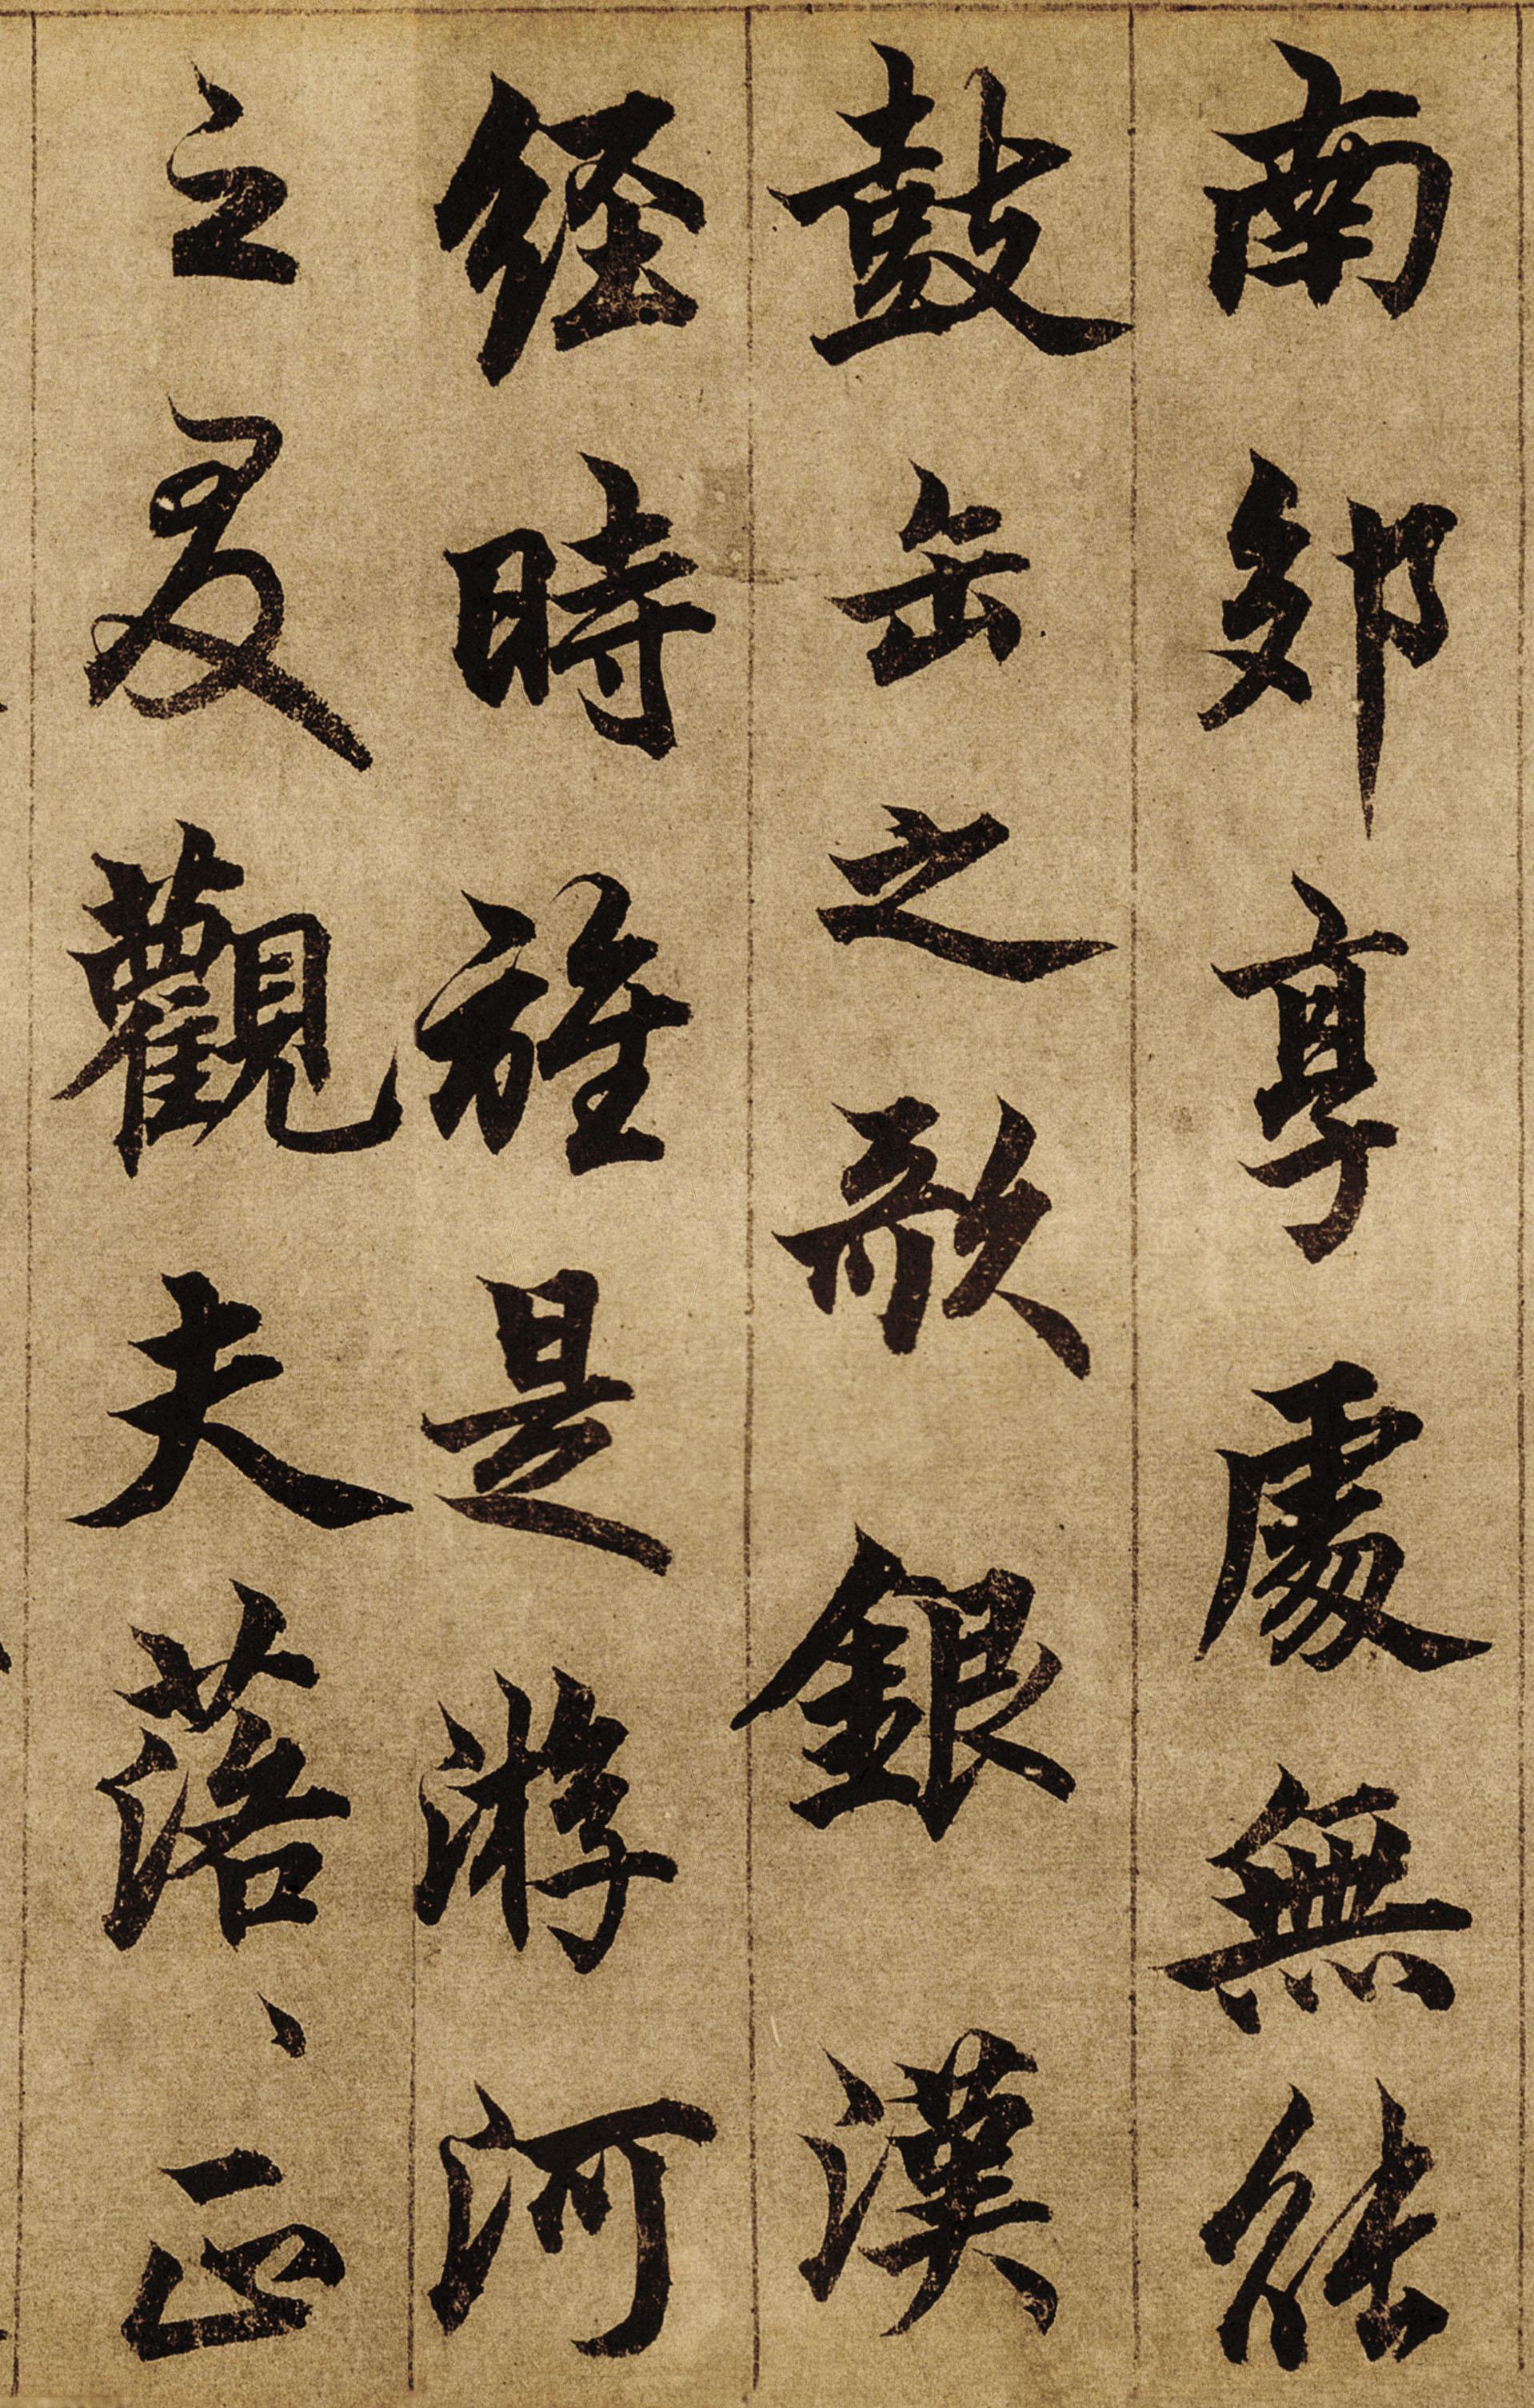 南郊享處無能
鼓缶之歌銀漢
経時旌是游河
之友觀夫落〻正